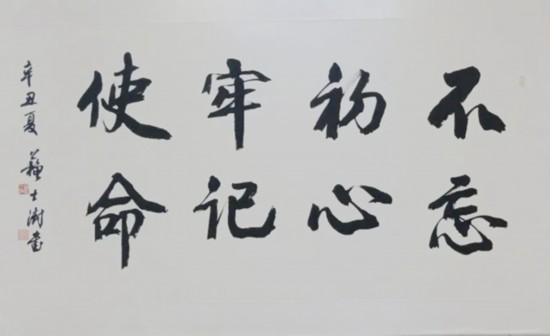 不忘
初心
牢记
使命
辛丑夏 蘇士澍書